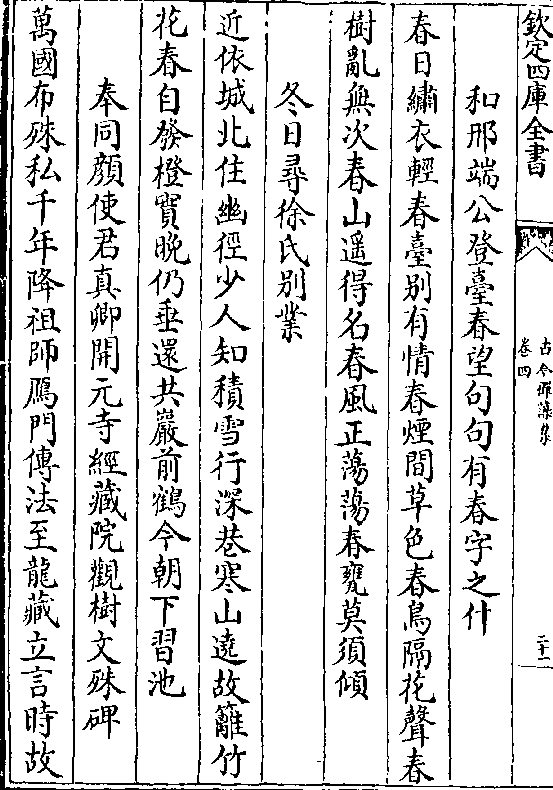 欽定四庫全書
古今禪藻集
卷四
二十一
和邢端公登臺春望句句有春字之什
春日繡衣輕春臺别有情春煙間草色春鳥隔花聲春
樹亂無次春山遥得名春風正蕩蕩春甕莫須傾
冬日尋徐氏别業
近依城北住幽徑少人知積雪行深巷寒山遶故籬竹
花春自發橙實晚仍垂還共巖前鶴今朝下習池
奉同顔使君真卿開元寺經藏院觀樹文殊碑
萬國布殊私千年降祖師鴈門傳法至龍藏立言時故